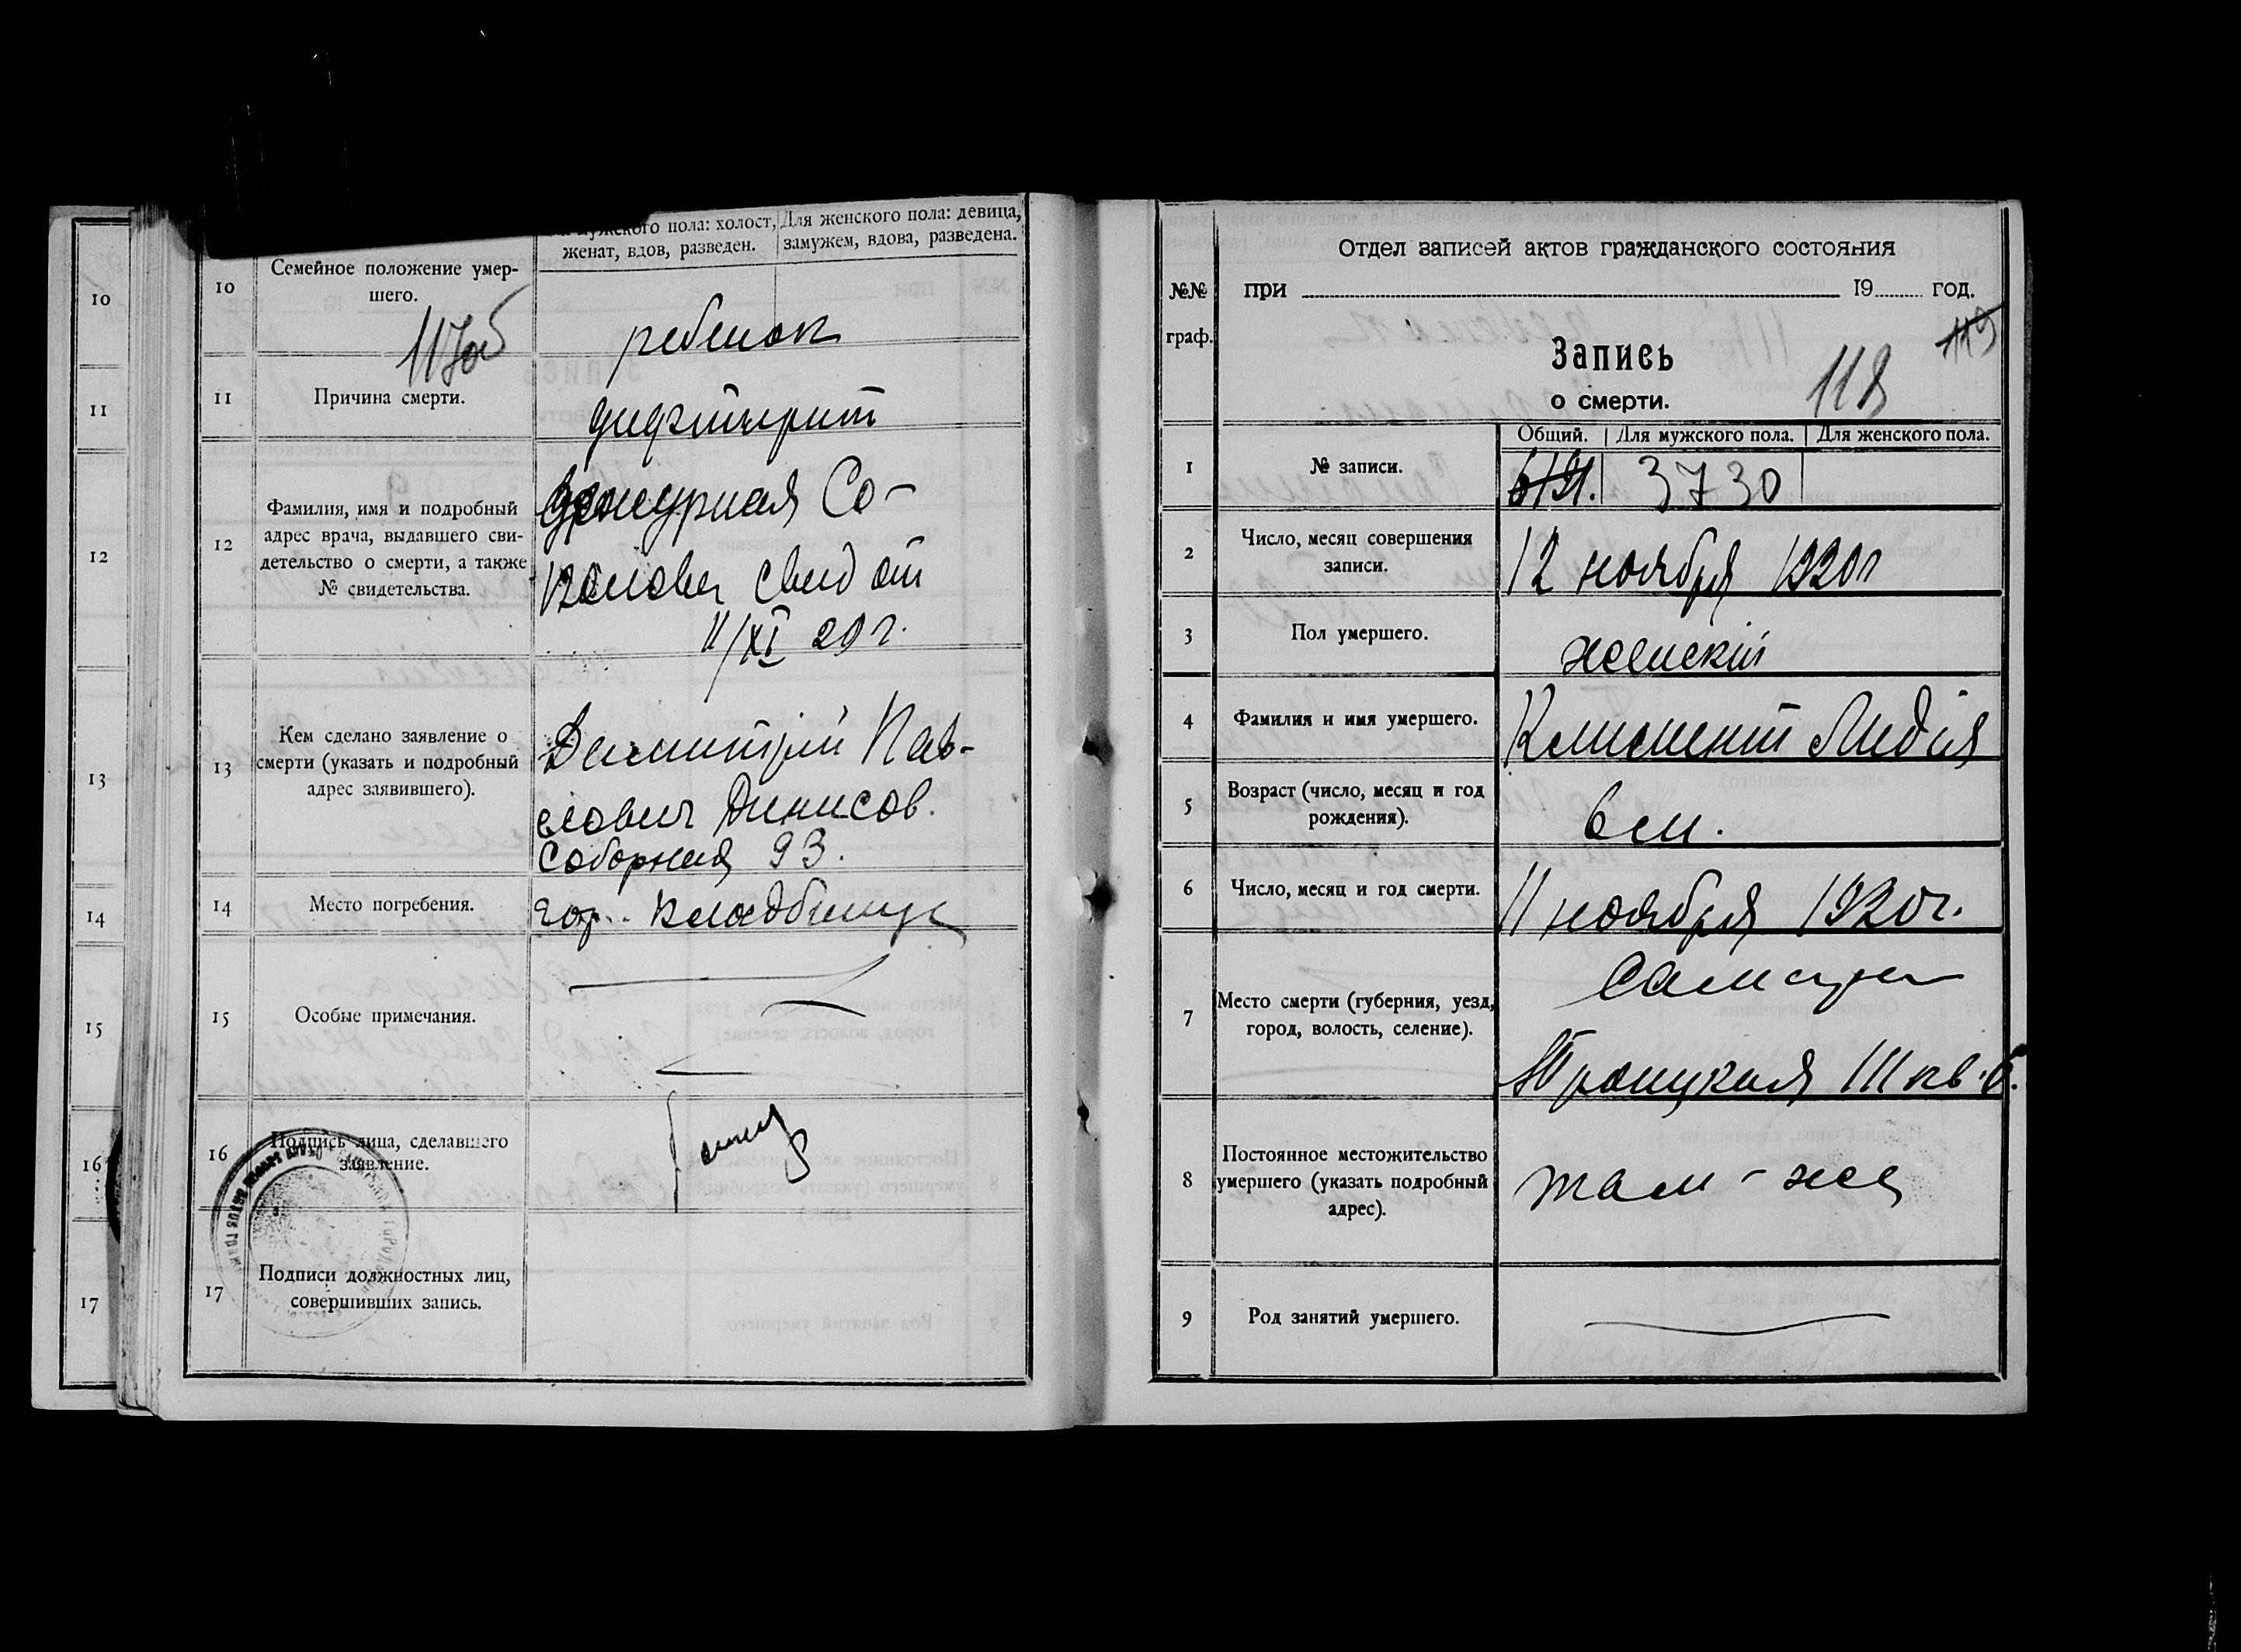 10
11
12
13
14
15
16
17
Для мужского пола: холост,
женат, вдов, разведен.
Для женского пола: девица,
замужем, вдова, разведена.
10
Семейное положение умер-
шего.
ребенок
117об
11
Причина смерти.
дифтерит
12
Фамилия, имя и подробный
адрес врача, выдавшего сви-
детельство о смерти, а также
№ свидетельства.
дежурная Со-
колова свид от
11/XI 20 г.
13
Кем сделано заявление о
смерти (указать и подробный
адрес заявившего).
Димитрий Пав-
лович Денисов.
Соборная 93.
14
Место погребения.
гор. кладбище
15
Особые примечания.
16
Подпись лица, сделавшего
заявление.
17
Подписи должностных лиц,
совершивших запись.
Отдел записей актов гражданского состояния
№№
граф.
при 19 год.
119
Запись
о смерти.
118
Общий. Для мужского пола. Для женского пола.
1
№ записи.
3730
2
Число, месяц совершения
записи.
12 ноября 1920 г
3
Пол умершего.
женский
4
Фамилия и имя умершего.
Климент Лидия
5
Возраст (число, месяц и год
рождения).
6 м.
6
Число, месяц и год смерти.
11 ноября 1920 г.
7
Место смерти (губерния, уезд,
город, волость, селение).
Самара
Троицкая 111 кв. 6.
8
Постоянное местожительство
умершего (указать подробный
адрес).
там-же
9
Род занятий умершего.